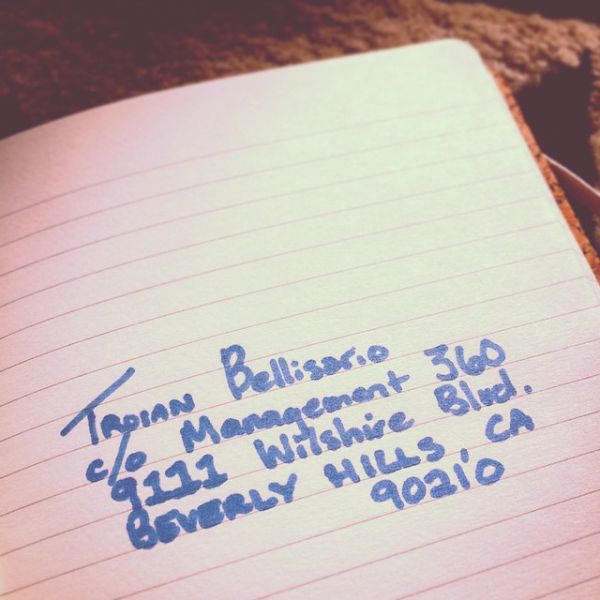 Troian Bellisario
c/o Management 360
9111 Wilshire Blvd.
Beverly Hills, CA
90210